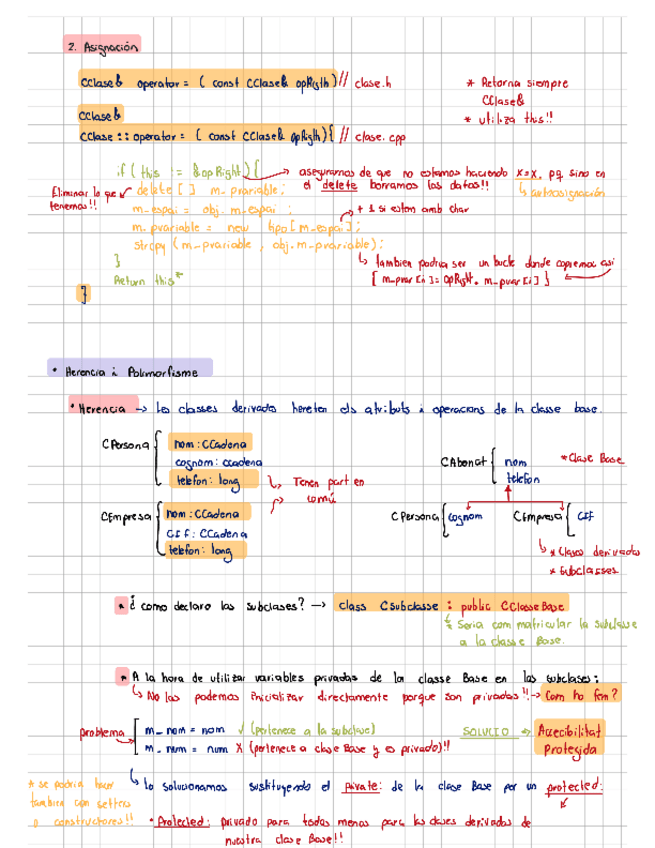 2. Asignación
CClase& operator = ( const CClase& opRigth) // clase.h
* Retorna siempre
CClase&
* utiliza this!!
CClase&
CClase :: operator = ( const CClase& opRigth) { // clase.cpp
if ( this != &opRight) {
→ aseguramos de que no estamos haciendo x=x, pq sino en
el delete borramos los datos!!
↳ autoasignación
Eliminar lo que
tenemos!!
delete [ ] m_pvariable;
m_espai = obj. m_espai ;
m_pvariable = new tipo [m_espai];
+ 1 si estem amb char
strcpy (m_pvariable , obj. m_pvariable);
}
↳ tambien podria ser un bucle donde copiemos asi
[ m_pvar [i] = opRight. m_pvar [i] ]
Return this*
}
• Herencia i Polimorfisme
* Herencia → Les classes derivades hereten els atributs i operacions de la classe base.
CPersona
nom : CCadena
cognom : ccadena
telefon : long
↳ Tenen part en
comú
CEmpresa
nom : CCadena
CIF : CCadena
telefon : long
CAbonat
nom
telefon
*Clase Base
CPersona
cognom
CEmpresa
CIF
↳ * Clases derivadas
* Subclasses
* ¿ como declaro las subclases? → class CSubclasse : public CClasseBase
Seria com matricular la subclasse
a la classe Base.
* A la hora de utilizar variables privadas de la classe Base en las subclases:
↳ No las podemos inicializar directamente porque son privadas!! → Com ho fem?
problema
m_nom = nom √ (pertenece a la subclase)
m_num = num X (pertenece a clase Base y es privado)!!
SOLUCIO ⇒ Accecibilitat
protegida
↳ Lo solucionamos sustituyendo el private: de la clase Base por un protected:
* se podria hacer
tambien con setters
o constructores!!
• Protected: privado para todas menos para las clases derivadas de
nuestra clase Base!!